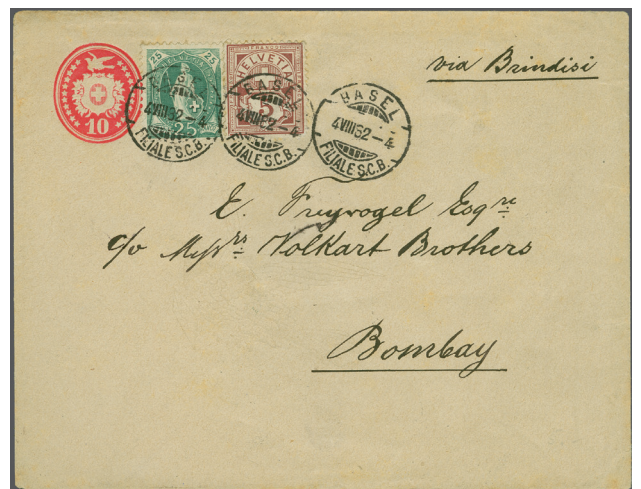 10
25 25
25
FRANCO
HELVETIA
5
BASEL
4 VIII 92 – 4
FILIALE S.C.B.
BASEL
4 VIII 92 – 4
FILIALE S.C.B.
BASEL
4 VIII 92 – 4
FILIALE S.C.B.
via Brindisi
E. Freyvogel Esqre
c/o Messrs Volkart Brothers
Bombay